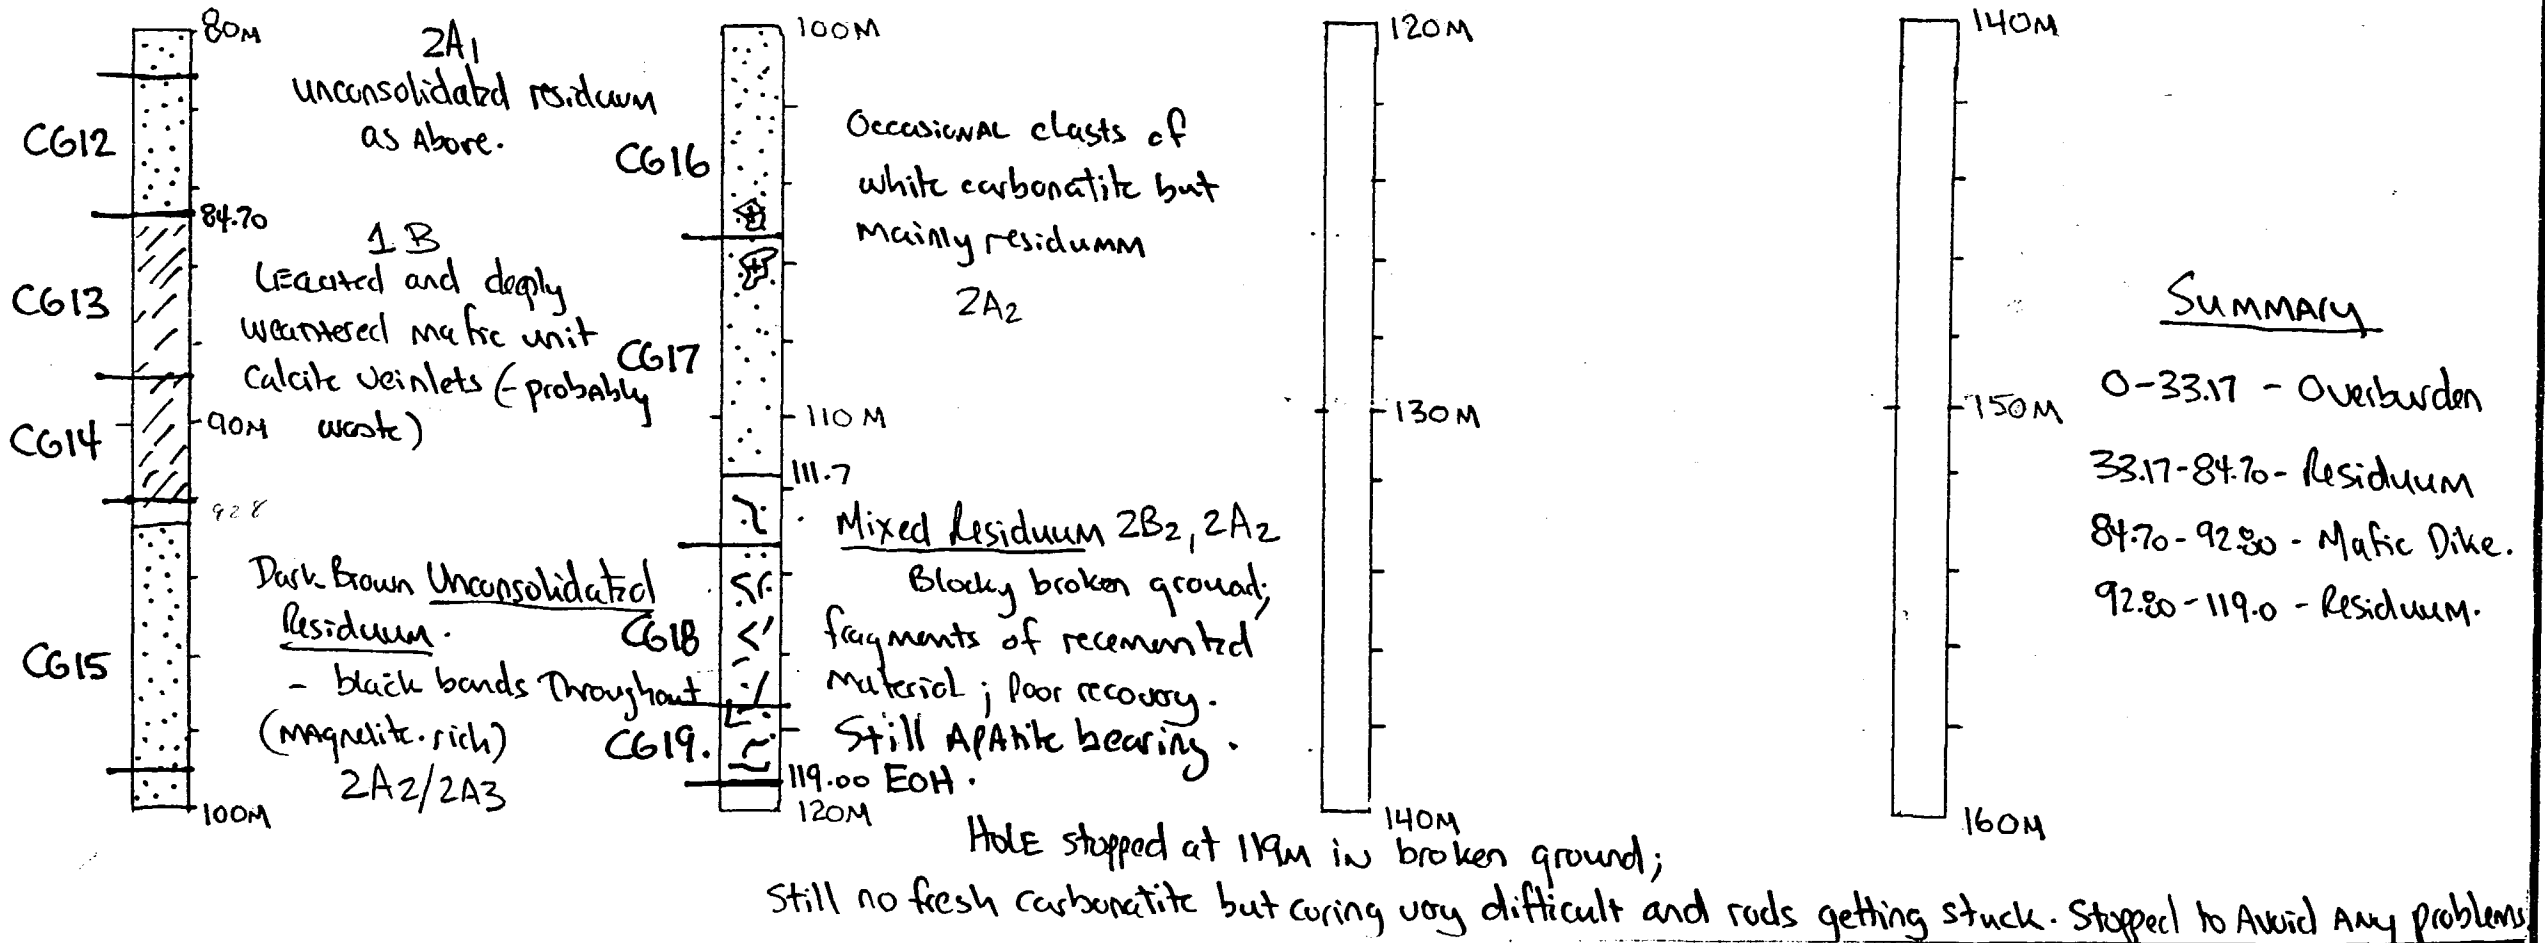 80M
2A1
unconsolidated residuum
as Above.
CG12
84.70
1B
LEACHED and deeply
weathered mafic unit
CG13
Calcite veinlets (-probably
waste)
90M
CG14
92.8
Dark Brown Unconsolidated
Residuum.
CG15
- black bands Throughout
(MAgnetite-rich)
2A2/2A3
100M
100M
CG16
OccasioNAL clasts of
white carbonatite but
mainly residumm
2A2
CG17
110M
111.7
Mixed Residuum 2B2, 2A2
Blocky broken ground;
CG18
fragments of recemented
material; Poor recovery.
CG19.
Still APAtite bearing.
119.00 EOH.
120M
120M
130M
140M
140M
150M
160M
Summary
0-33.17 - Overburden
33.17-84.70- Residuum
84.70-92.80 - Mafic Dike.
92.80-119.0 - Residuum.
HOLE stopped at 119M in broken ground;
Still no fresh carbonatite but coring very difficult and rods getting stuck. Stopped to Avoid Any problems